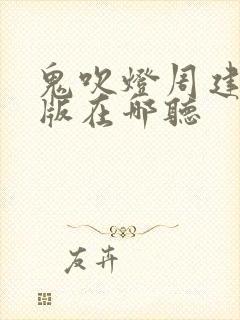 鬼吹燈周建
版在哪聽
友卉